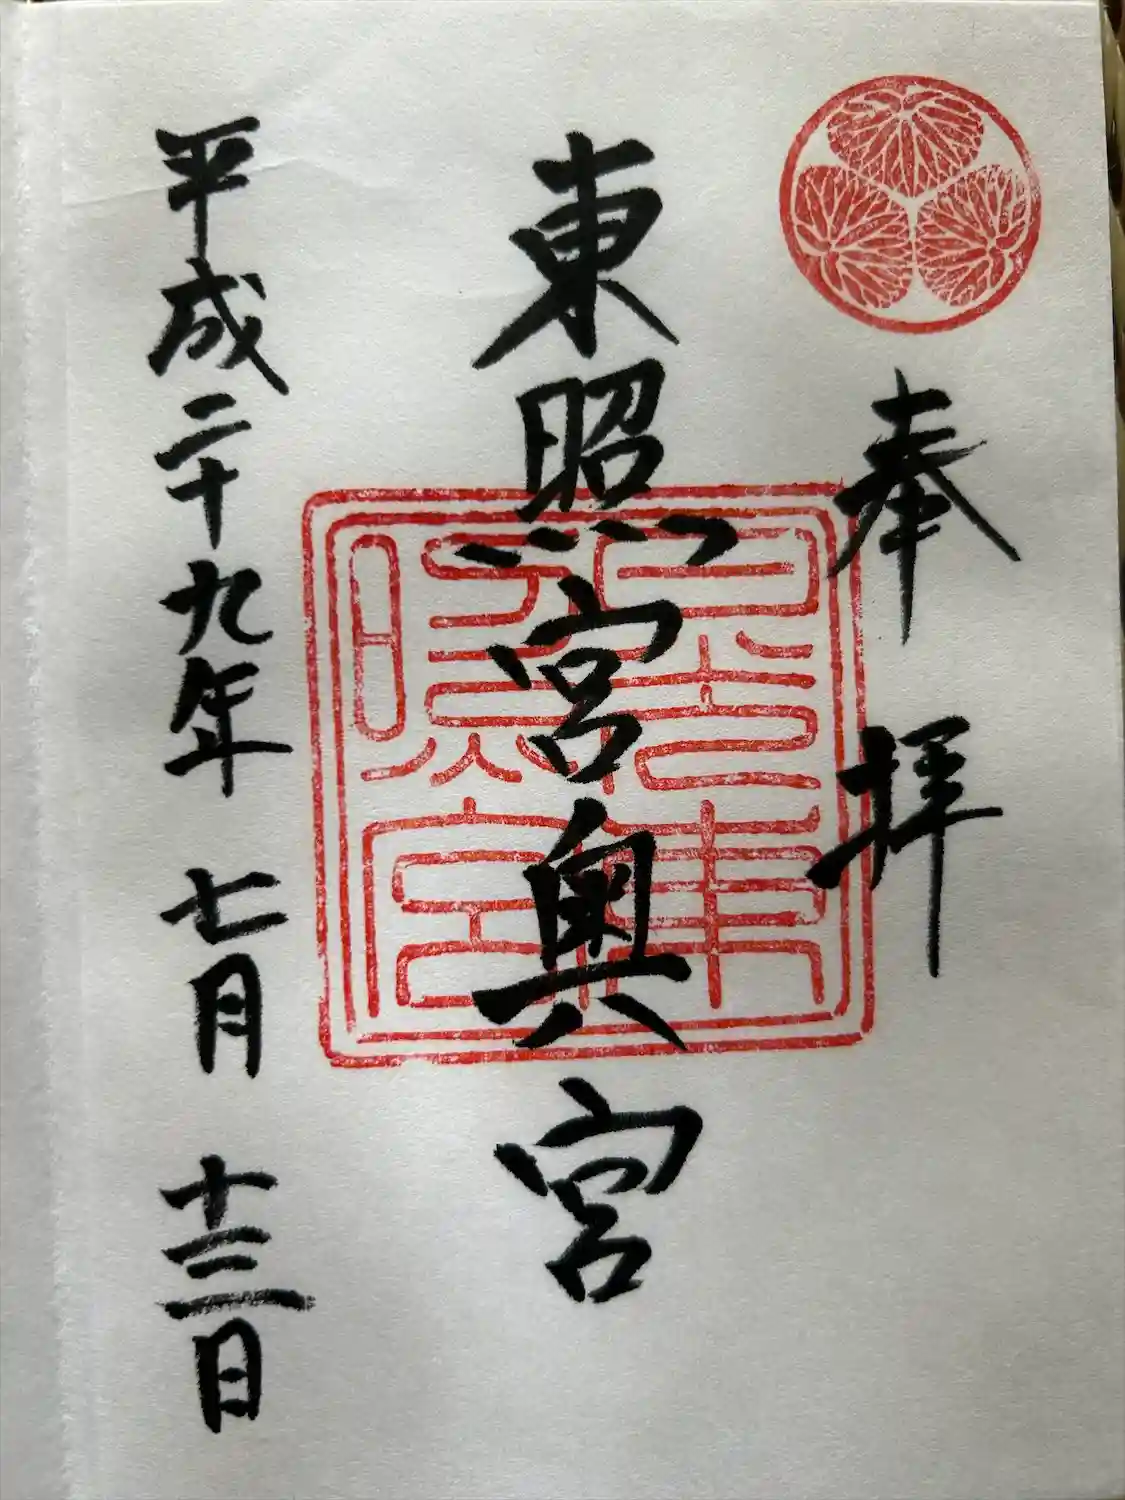 奉拝
東照宮奥宮
平成二十九年 七月 十三日